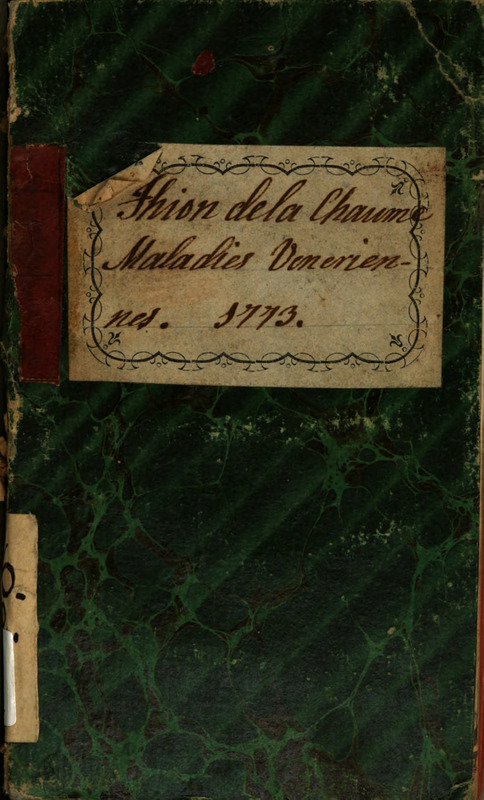 Thion de la Chaume
Maladies Venerien-
nes. 1773.